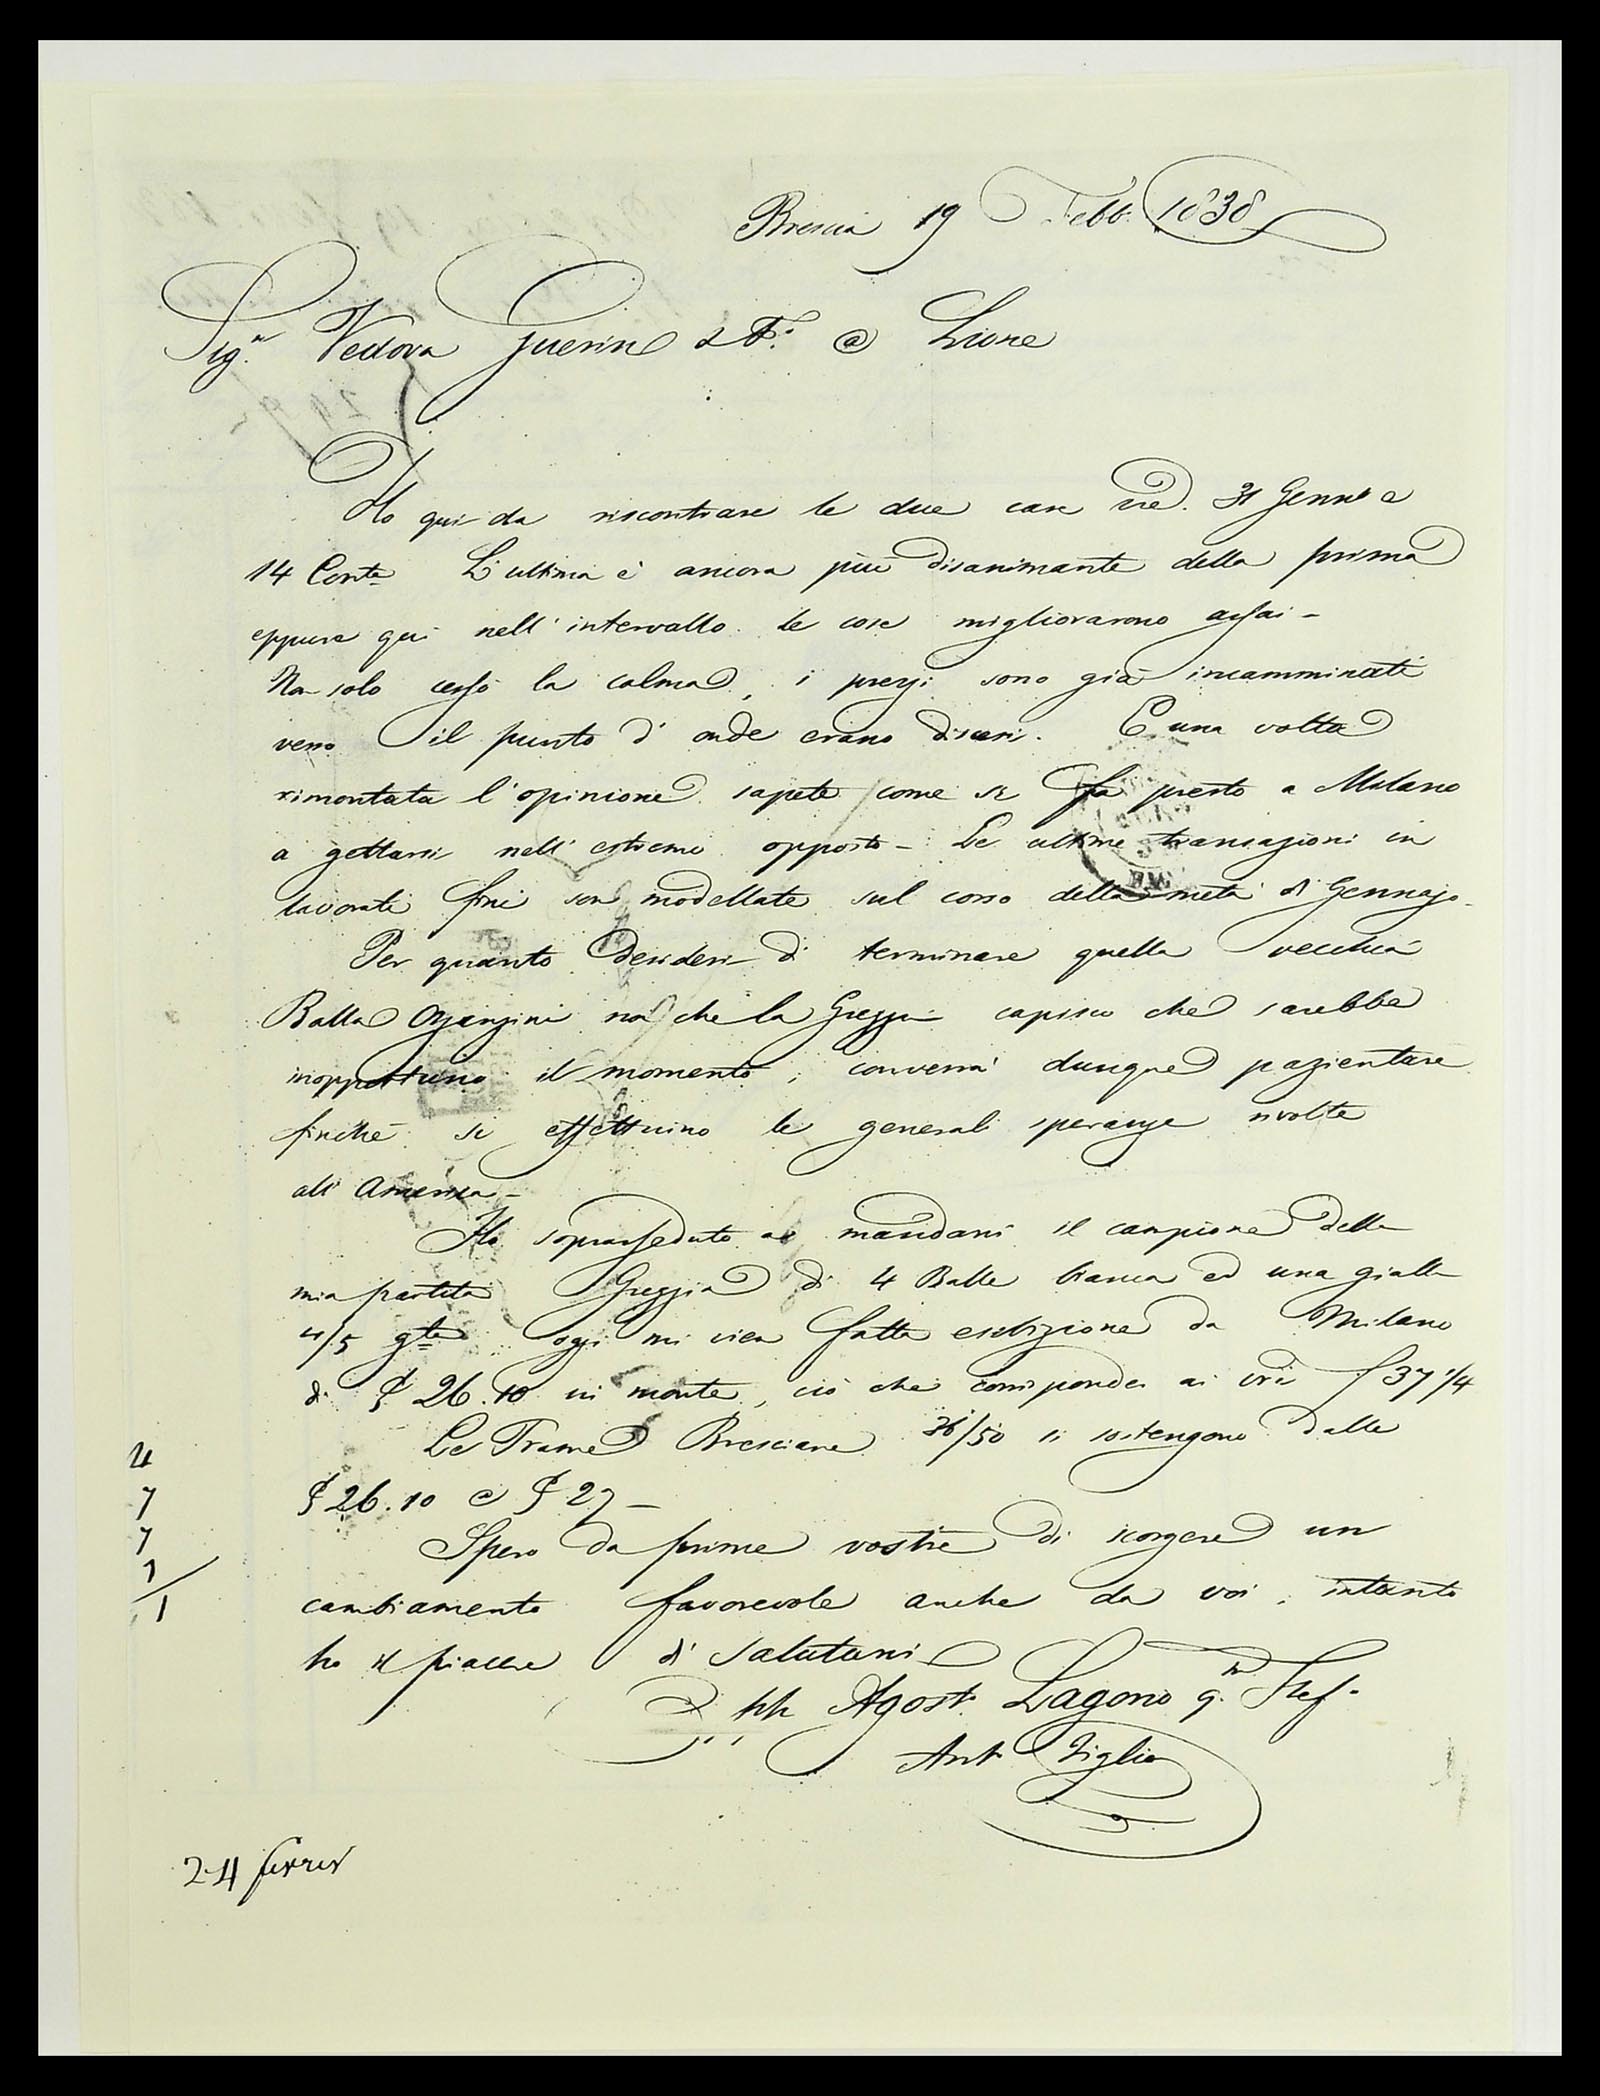 Brescia 19 Febb. 1838
Sig.ri Vedova Guerin & F.o @ Lione
Ho qui da riscontrare le due care vre. 31 Genn.o e
14 Corr.te L'ultima è ancora più disanimante della prima
eppure qui nell'intervallo le cose migliorarono assai -
Non solo cessò la calma, i prezzi sono già incamminati
verso il punto d'onde erano discesi. E una volta
rimontata l'opinione sapete come si fa presto a Milano
a gettarsi nell'estremo opposto - Le ultime transazioni in
lavorati fini son modellate sul corso della metà di Gennajo.
Per quanto desideri di terminare quella vecchia
Balla Organzini non che la Greggia capisco che sarebbe
inopportuno il momento, converrà dunque pazientare
finchè si effettuino le generali speranze rivolte
all'America -
Ho soprasseduto a mandarvi il campione della
mia partita Greggia di 4 Balle bianca ed una gialla
4/5 oggi mi vien fatta esibizione da Milano
di £ 26.10 in monte, ciò che corrisponde ai vri f 37 1/4
Le Trame Bresciane 36/50 si sostengono dalle
£ 26.10 a £ 27 -
Spero da prime vostre di scorgere un
cambiamento favorevole anche da voi, intanto
ho il piacere di salutarvi
Agost. Lagorio q.m Stef.
Ant.
4
7
7
1
1
24 fevrier